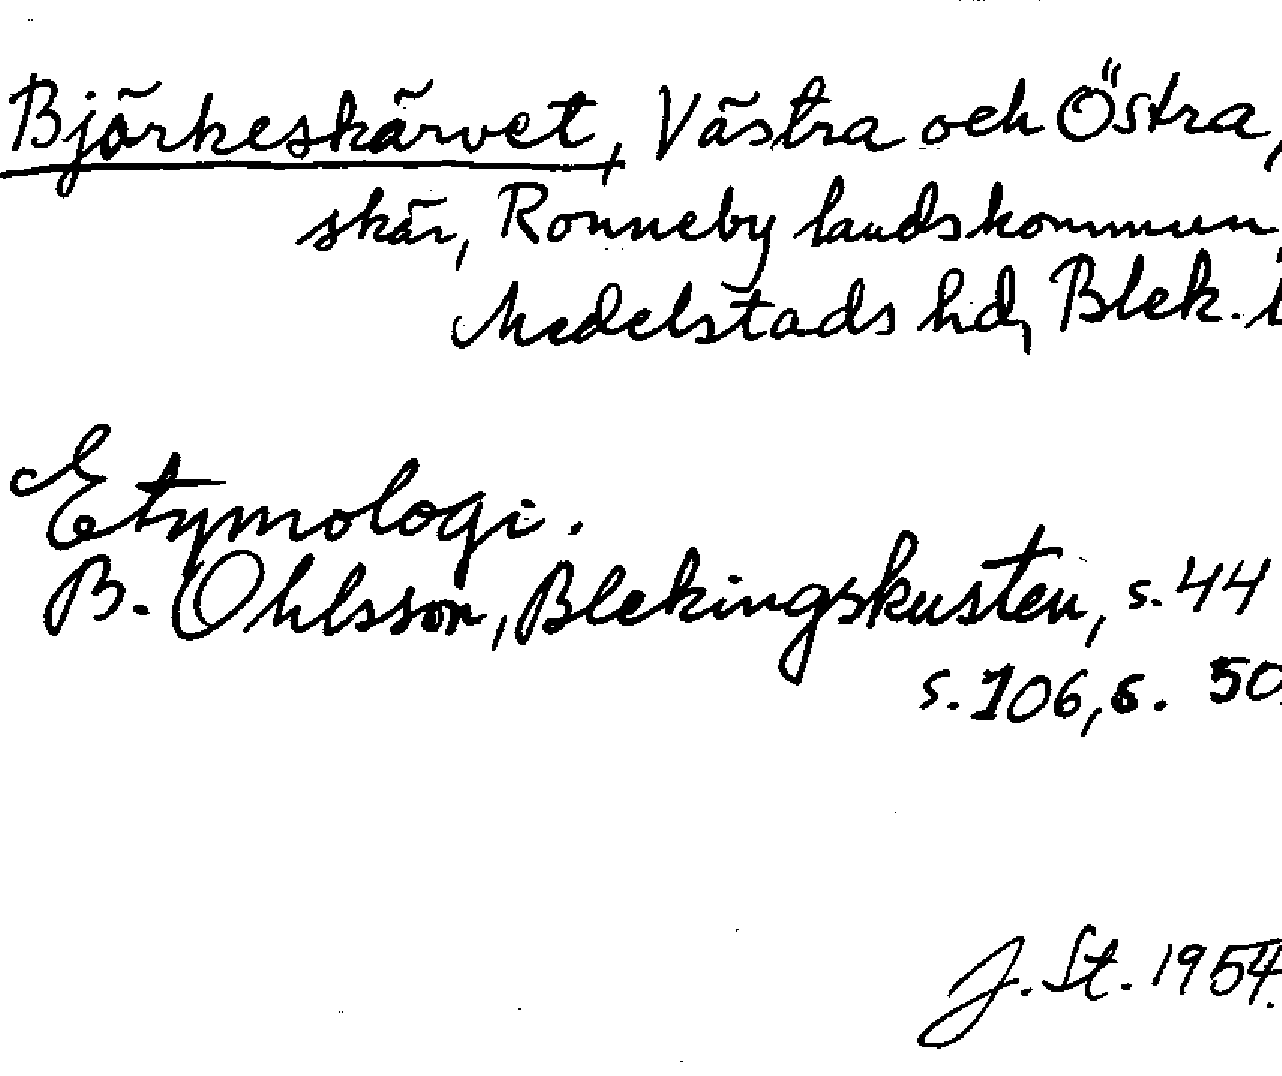 Björkeskärvet, Västra och Östra,
skär, Ronneby landskommun,
Medelstads hd, Blek. l
Etymologi.
B. Ohlsson, Blekingskusten, s. 44
s. 106, s. 50.
J. St. 1954.